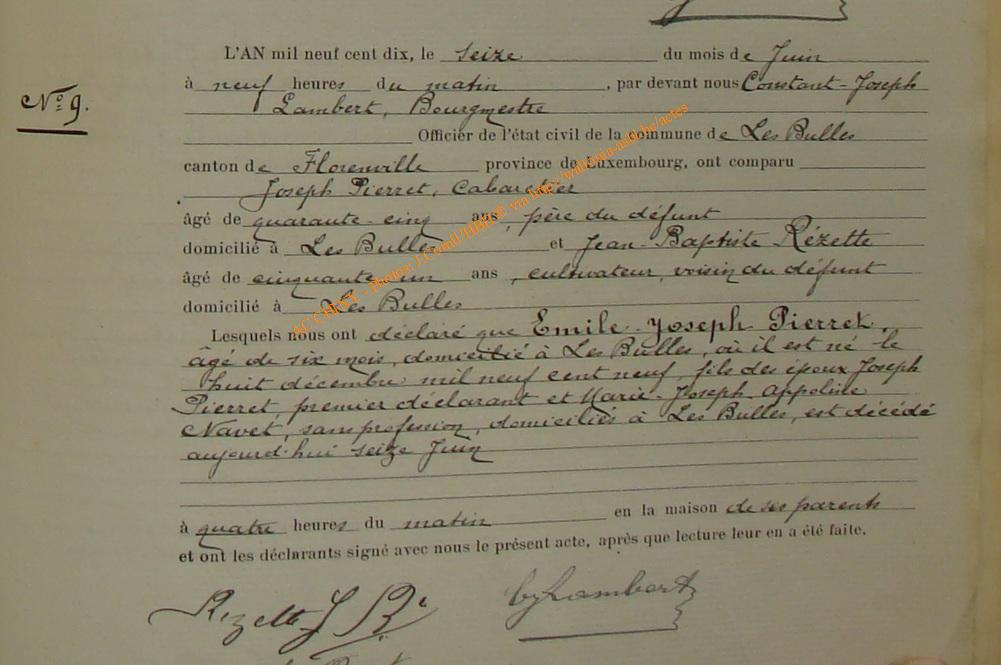 L'AN mil neuf cent dix, le seize du mois de Juin
N° 9.
à neuf heures du matin, par devant nous Constant-Joseph
Lambert, Bourgmestre
Officier de l'état civil de la commune de Les Bulles
canton de Florenville province de Luxembourg, ont comparu
Joseph Pierret, Cabaretier
âgé de quarante-cinq ans, père du défunt
domicilié à Les Bulles et Jean-Baptiste Rézette
âgé de cinquante un ans, cultivateur, voisin du défunt
domicilié à Les Bulles
Lesquels nous ont déclaré que Emile-Joseph Pierret,
âgé de six mois, domicilié à Les Bulles, où il est né le
huit décembre mil neuf cent neuf, fils des époux Joseph
Pierret, premier déclarant et Marie-Joseph Appoline
Navet, sans profession, domiciliés à Les Bulles, est décédé
aujourd'hui seize Juin
à quatre heures du matin en la maison de ses parents
et ont les déclarants signé avec nous le présent acte, après que lecture leur en a été faite.
Rezette J B
Lambert